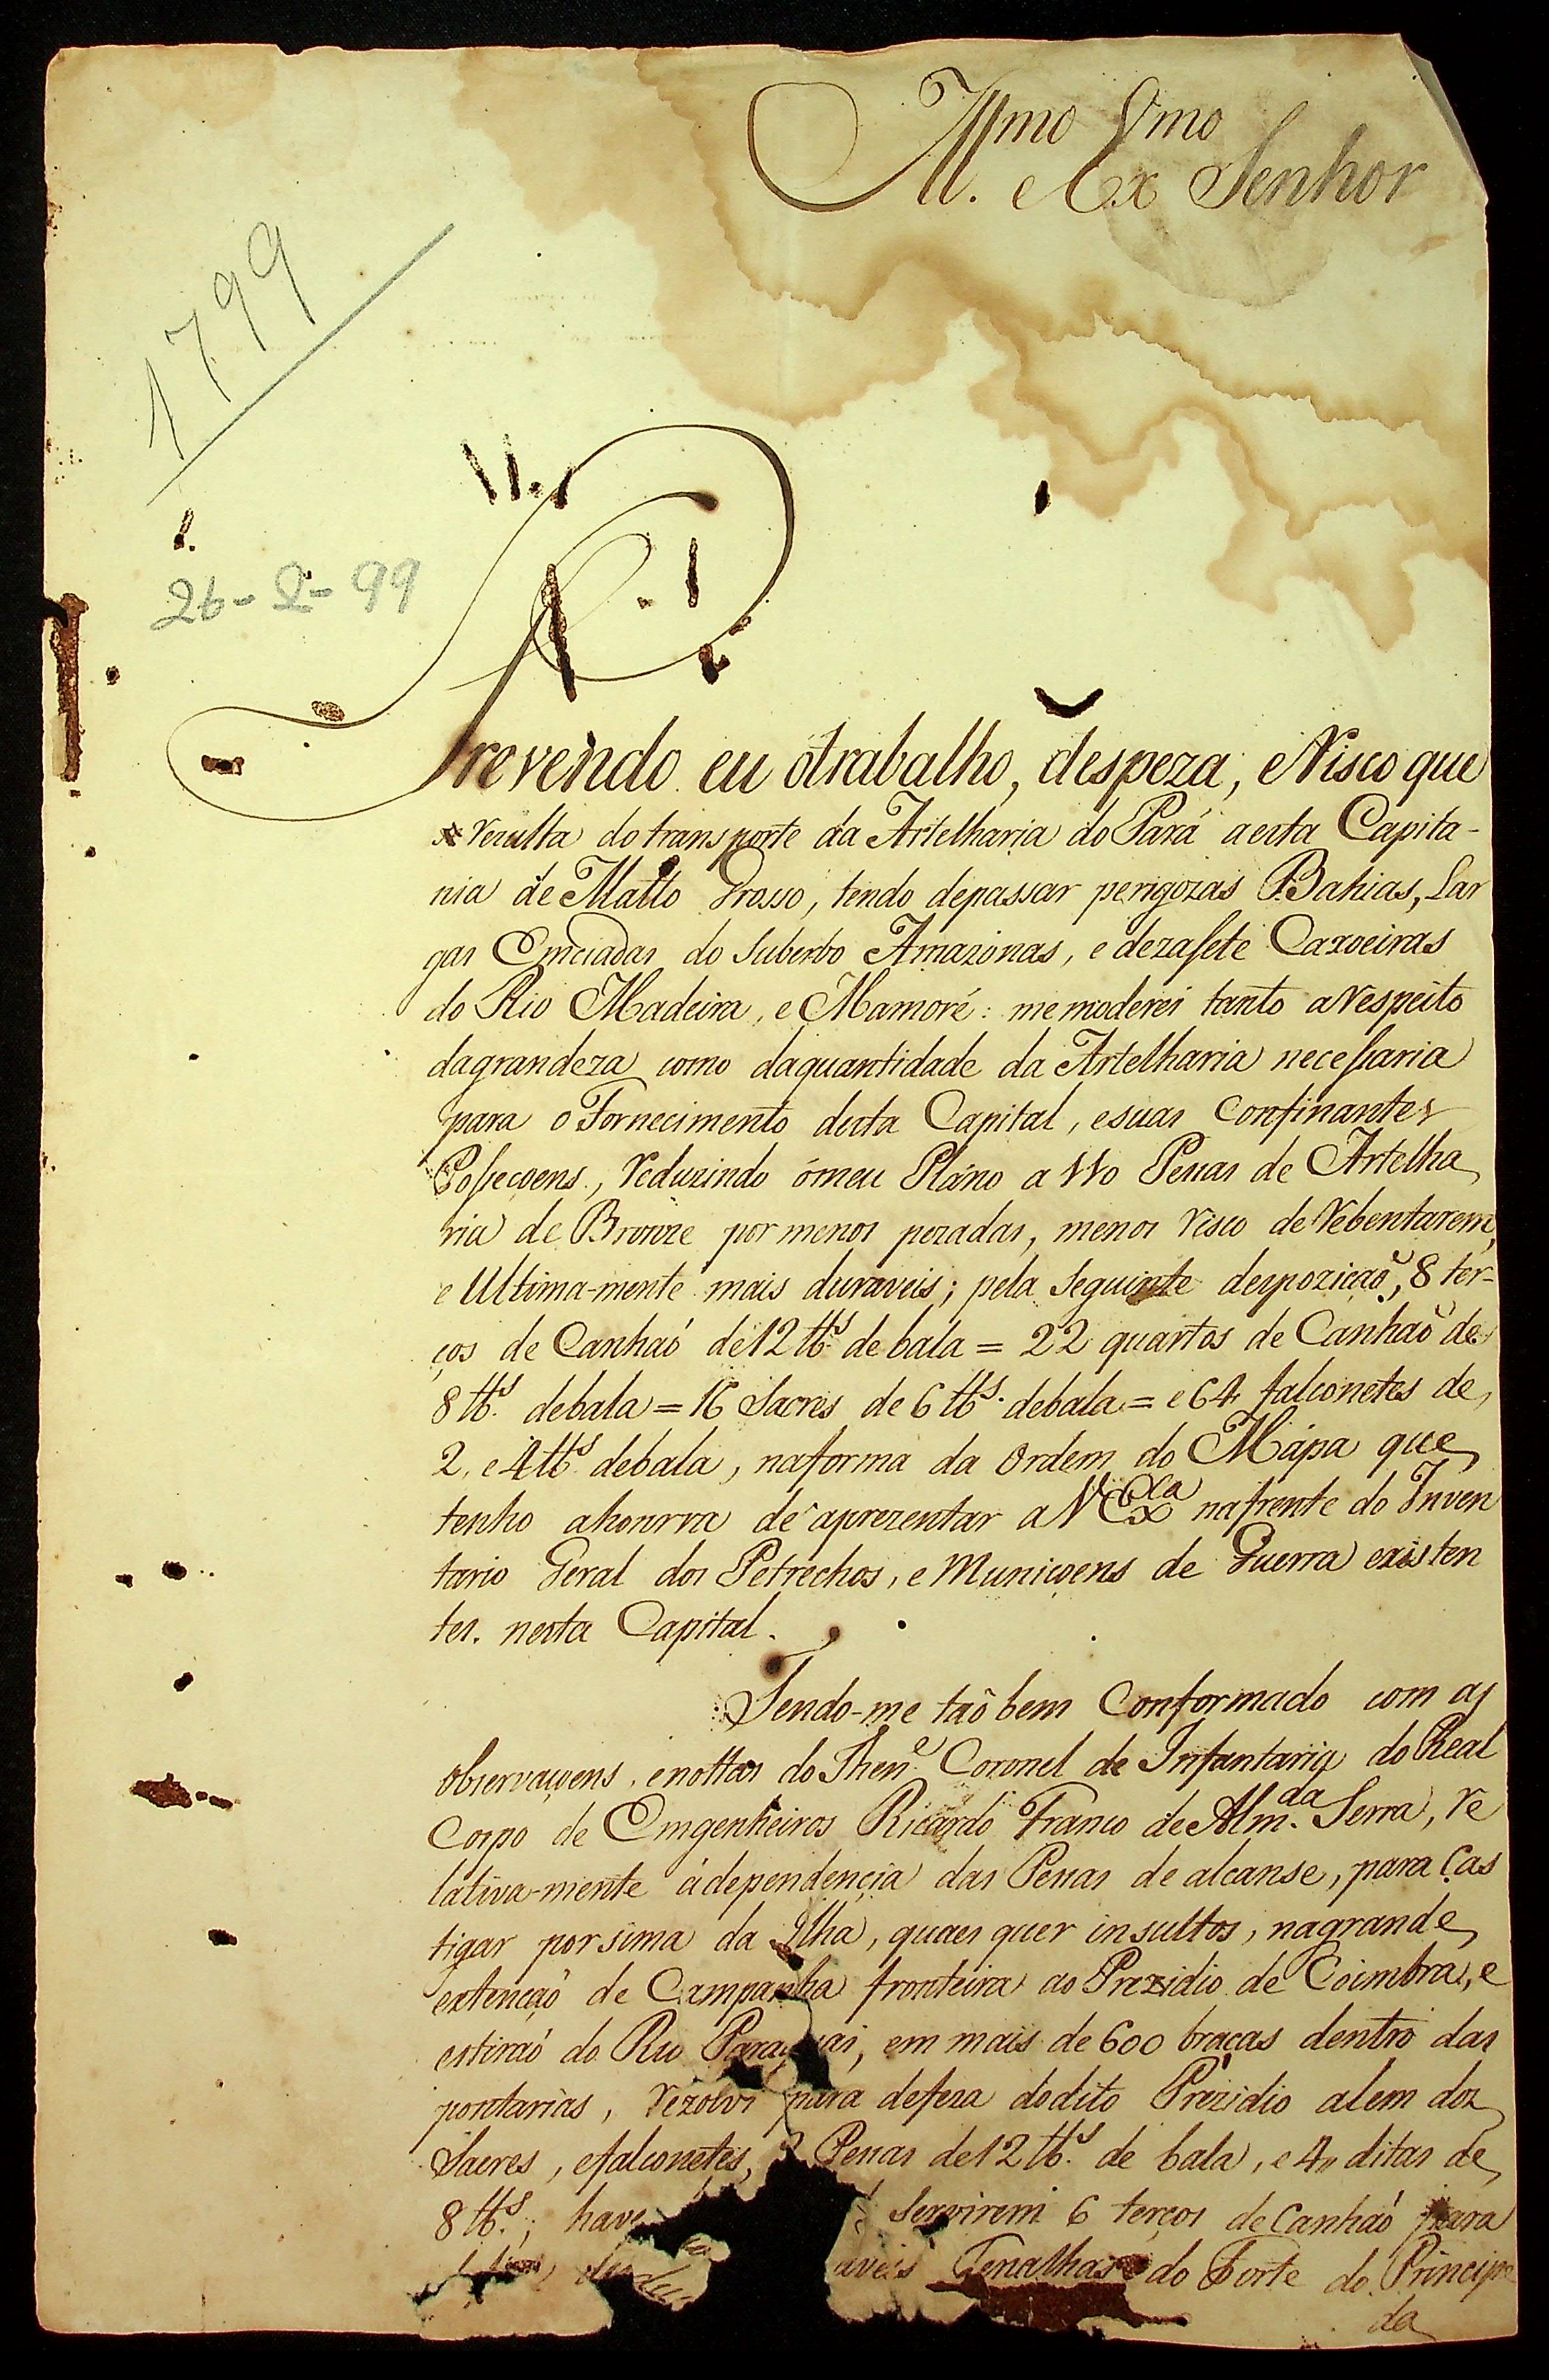 Illmo Exmo Senhor
1799
26-2-99
Prevendo eu otrabalho, despeza, eRisco que
rezulta do transporte da Artelharia do Pará aesta Capita-
nia de Matto Grosso, tendo depassar perigozas Bahias, Lar
gas Enciadas do Suberbo Amazonas, e dezasete Caxoeiras
do Rio Madeira, e Mamoré: me moderei tanto aRespeito
dagrandeza como daquantidade da Artelharia necessaria
para o Fornecimento desta Capital, esuas Confinantes
Possecoens, Reduzindo ómeu Pláno a 110 Pessas de Artelha
ria de Bronze por menos pezadas, menos Risco de Rebentarem,
e Ultima-mente mais duraveis; pela Seguinte despozição, 8 ter-
ços de Canhaó de 12 ℔s de bala = 22 quartos de Canhaõ de
8 ℔s debala = 16 Sacres de 6 ℔s debala = e 64 falconetes de
2, e 4 ℔s debala, naforma da Ordem do Mápa que
tenho ahonrra de aprezentar a VExca nafrente do Inven
tario Geral dos Petrechos, e Municoens de Guerra existen
tes. nesta Capital.
Tendo-me taõ bem Conformado com as
observaçoens, enottas do Thene Coronel de Infantaria do Real
Corpo de Emgenheiros Ricardo Franco de Alm.da Serra, Re
lativa-mente ádependencia das Pessas de alcanse, para Cas
tigar porsima da Ilha, quaes quer insultos, nagrande
extenção de Campanha fronteira ao Prezidio de Coimbra, e
estiraó do Rio Paraguai, em mais de 600 braças dentro das
pontarias, Rezolvi para defeza dodito Prezidio alem dos
Sacres, efalconetes, 2 Pessas de 12 ℔s de bala, e 4 ditas de
8 ℔s; have Servirem 6 terços de Canhaó para
aveis Tenalhas do Forte do Principe
da